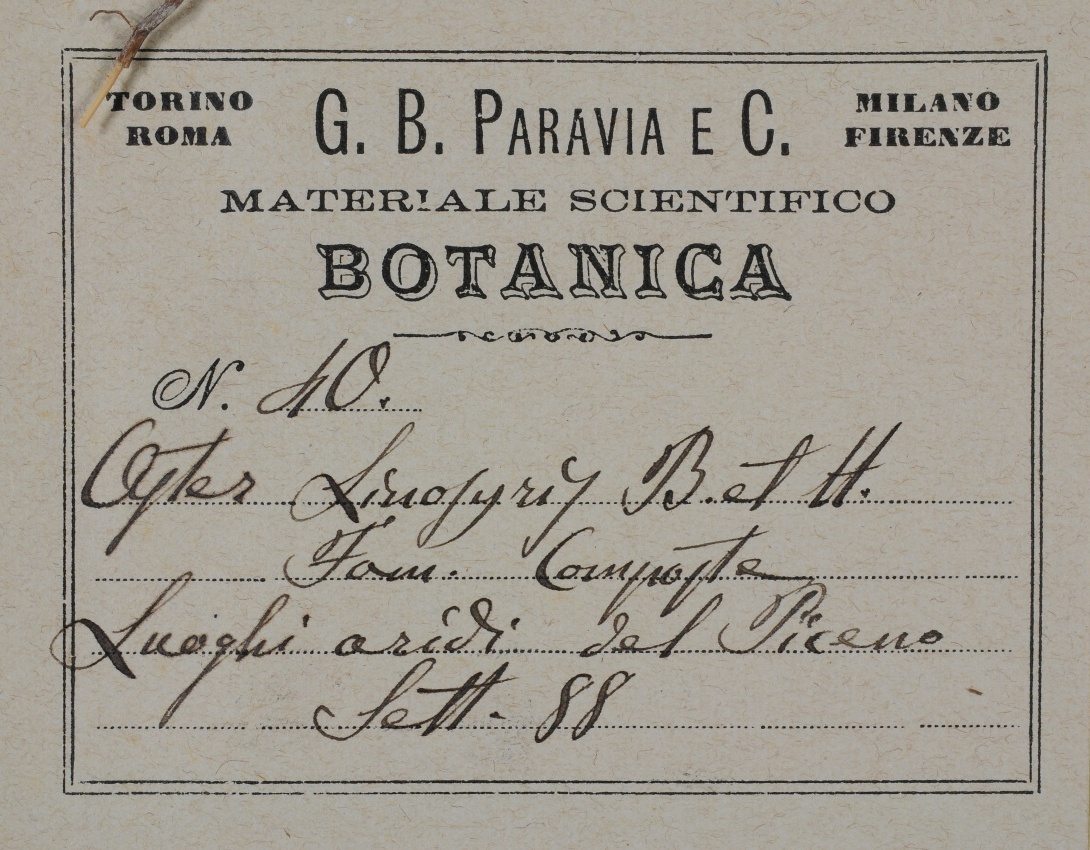 TORINO ROMA
G. B. PARAVIA E C.
MILANO FIRENZE
MATERIALE SCIENTIFICO
BOTANICA
N. 40.
Aster Linosyris B. et H.
Fam. Composte
Luoghi aridi del Piceno
Sett. 88